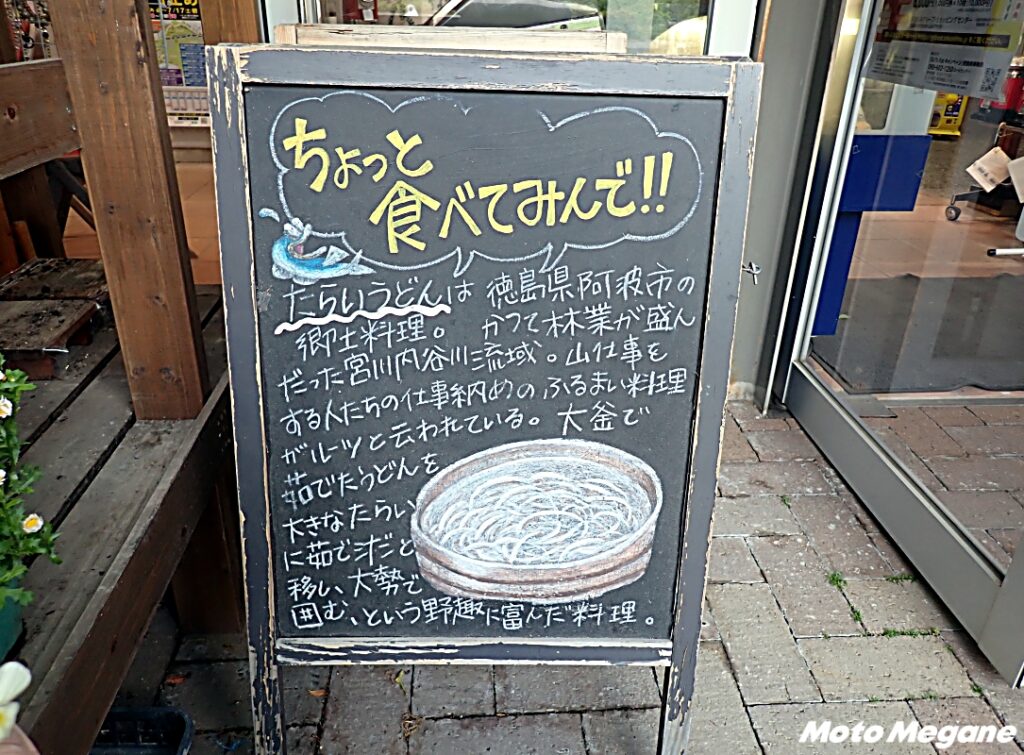 ちょっと
食べてみんで!!
たらいうどんは 徳島県阿波市の
郷土料理。 かつて林業が盛ん
だった宮川内谷川流域。山仕事を
する人たちの仕事納めのふるまい料理
がルーツと云われている。大釜で
茹でたうどんを
大きなたらい
に茹で汁だと
移し、大勢で
囲む、という野趣に富んだ料理。
Moto Megane